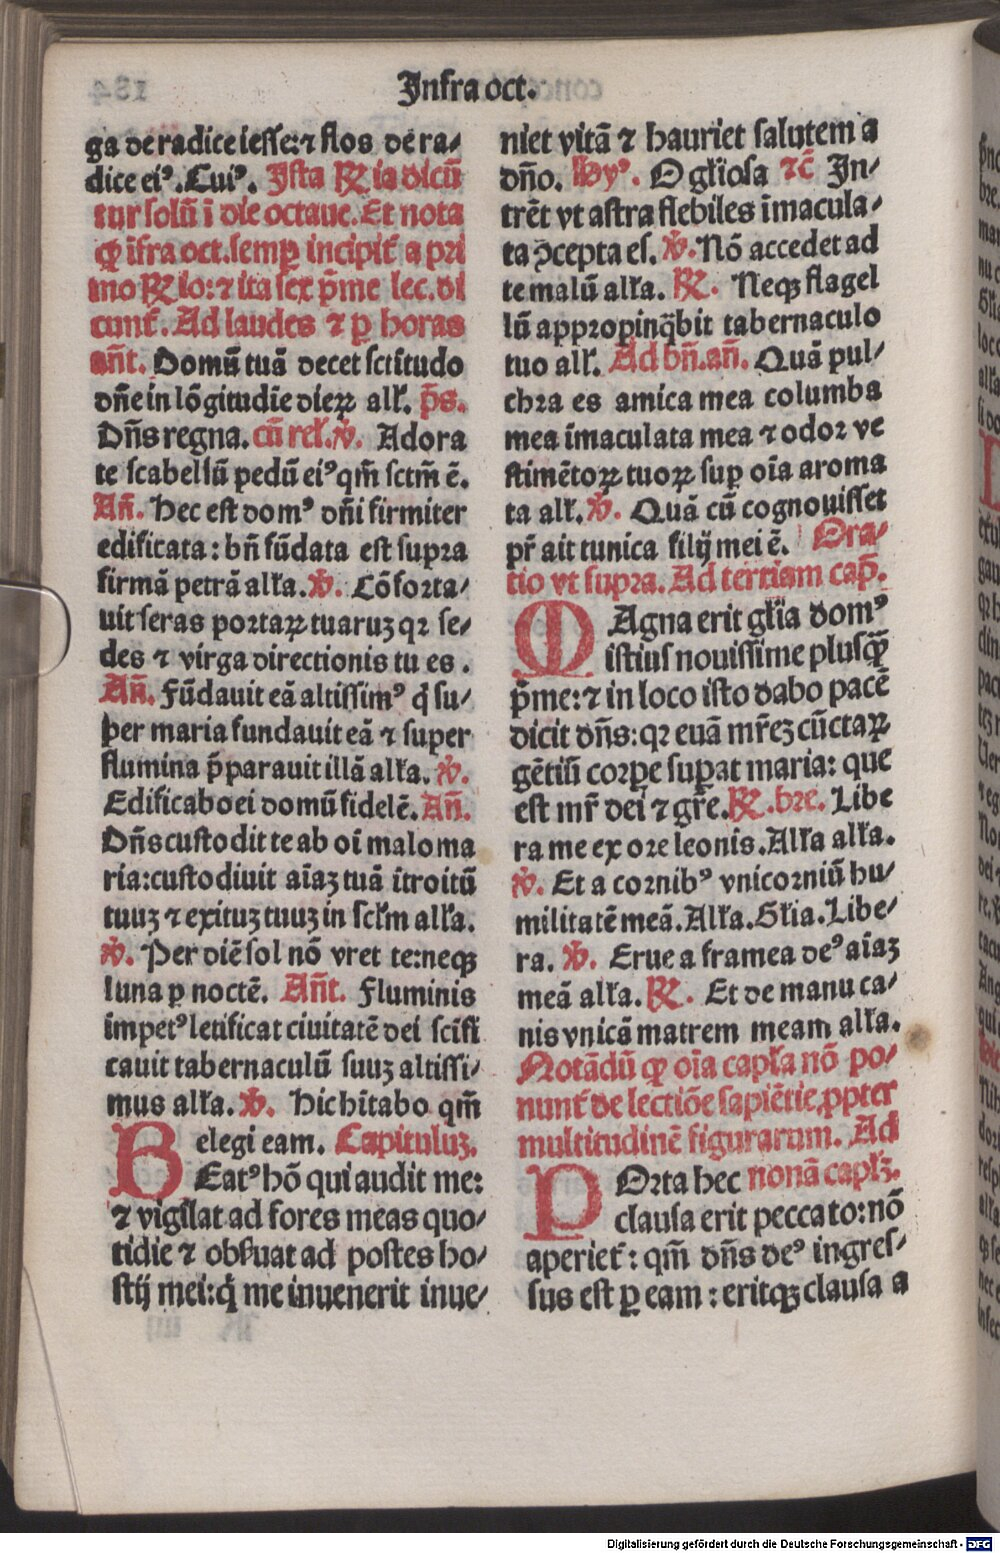 Infra oct.
ga de radice iesse: ⁊ flos de ra⸗
dice eiꝰ. Cuiꝰ. Ista ℟ ia dicũ
tur solũ ĩ die octaue. Et nota
ꝙ ĩfra oct. semꝑ incipit̃ a pri
mo ℟ io: ⁊ ita sex p̃me lec. di
cunt̃. Ad laudes ⁊ ꝑ horas
añt. Domũ tuã decet sctĩtudo
dñe in lõgitudĩe dieꝝ all̃. p̃s.
Dñs regna. cũ rel̃. ℣. Adora
te scabellũ pedũ eiꝰ qm̃ sctm̃ ẽ.
Añ. Hec est domꝰ dñi firmiter
edificata: bñ fũdata est supra
firmã petrã all̃a. ℣. Cõforta⸗
uit seras portaꝝ tuaruz qꝛ se⸗
des ⁊ virga directionis tu es.
Añ. Fũdauit eã altissimꝰ q̃ su⸗
per maria fundauit eã ⁊ super
flumina p̃parauit illã all̃a. ℣.
Edificabo ei domũ fidelẽ. Añ.
Dñs custodit te ab oĩ malo ma
ria: custodiuit aĩaz tuã ĩtroitũ
tuuz ⁊ exituz tuuz in scl̃m all̃a.
℣. Per diẽ sol nõ vret te: neqꝫ
luna ꝑ noctẽ. Añt. Fluminis
impetꝰ letificat ciuitatẽ dei sc̃ifi
cauit tabernaculũ suuz altissi⸗
mus all̃a. ℣. Hic hĩtabo qm̃
elegi eam. Capituluz.
BEatꝰ hõ qui audit me:
⁊ vigilat ad fores meas quo⸗
tidie ⁊ obs̃uat ad postes ho⸗
stij mei: q̃ me inuenerit inue⸗
niet vitã ⁊ hauriet salutem a
dño. Hyꝰ. O gl̃iosa ⁊c̃ In⸗
trẽt vt astra flebiles ĩmacula⸗
ta ꝯcepta es. ℣. Nõ accedet ad
te malũ all̃a. ℟. Neqꝫ flagel
lũ appropinq̃bit tabernaculo
tuo all̃. Ad bñ. añ. Quã pul⸗
chra es amica mea columba
mea ĩmaculata mea ⁊ odor ve
stimẽtoꝝ tuoꝝ suꝑ oĩa aroma
ta all̃. ℣. Quã cũ cognouisset
pr̃ ait tunica filij mei ẽ. Ora⸗
tio vt supra. Ad tertiam cap̃.
MAgna erit gl̃ia domꝰ
istius nouissime plusq̃
p̃me: ⁊ in loco isto dabo pacẽ
dicit dñs: qꝛ euã mr̃ez cũctaꝝ
gẽtiũ corꝑe suꝑat maria: que
est mr̃ dei ⁊ gr̃e. ℟. bre. Libe
ra me ex ore leonis. All̃a all̃a.
℣. Et a cornibꝰ vnicorniũ hu⸗
militatẽ meã. All̃a. Gl̃ia. Libe⸗
ra. ℣. Erue a framea deꝰ aĩaz
meã all̃a. ℟. Et de manu ca⸗
nis vnicã matrem meam all̃a.
Notãdũ ꝙ oĩa capl̃a nõ po⸗
nunt̃ de lectiõe sapiẽtie, ꝓpter
multitudinẽ figurarum. Ad
nonã capl̃z.
POrta hec
clausa erit peccato: nõ
aperiet̃: qm̃ dñs deꝰ ingres⸗
sus est ꝑ eam: eritqꝫ clausa a
Digitalisierung gefördert durch die Deutsche Forschungsgemeinschaft - DFG